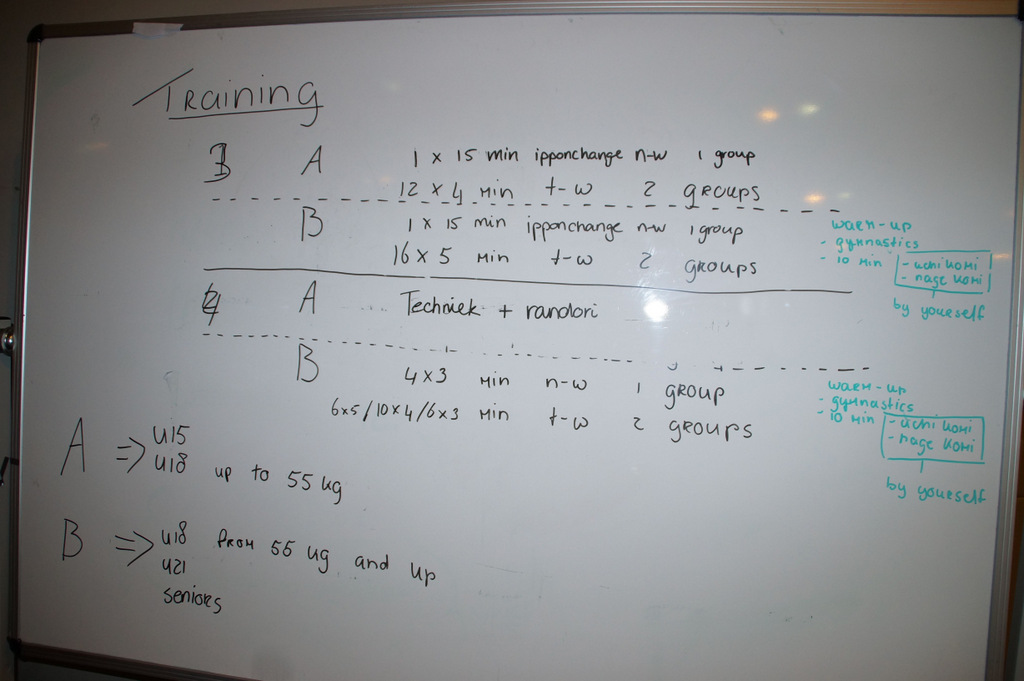 Training
A 1 x 15 min ipponchange n-w 1 group
12 x 4 min t-w 2 groups
B 1 x 15 min ipponchange n-w 1 group
16 x 5 min t-w 2 groups
warm-up
- gymnastics
- 10 min - uchi komi
- nage komi
by yourself
A Techniek + randori
B 4 x 3 min n-w 1 group
6x5/10x4/6x3 min t-w 2 groups
warm-up
- gymnastics
- 10 min - uchi komi
- nage komi
by yourself
A => u15
u18 up to 55 kg
B => u18 from 55 kg and up
u21
seniors